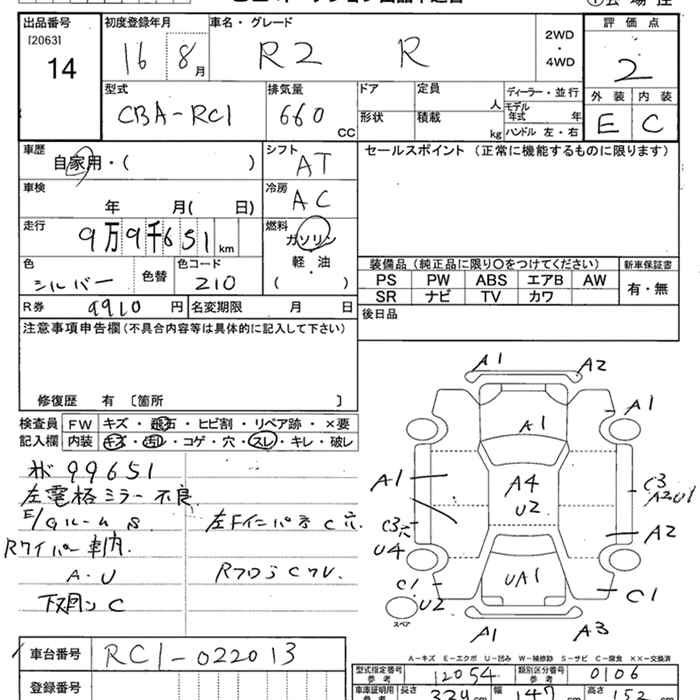 出品番号
[2063]
14
初度登録年月
16 8月
車名・グレード
R2 R
2WD
・
4WD
評価点
2
外装 内装
E C
型式
CBA-RC1
排気量
660 CC
ドア
形状
定員 人
積載 kg
ディーラー・並行
モデル年式 年
ハンドル 左・右
車歴
自家用・( )
シフト
AT
セールスポイント (正常に機能するものに限ります)
車検
年 月( 日)
冷房
AC
走行
9万9千651km
燃料
ガソリン
・
軽・油
( )
色
シルバー
色替
色コード
210
装備品 (純正品に限り〇をつけてください)
新車保証書
PS PW ABS エアB AW
SR ナビ TV カワ
有・無
R券 9910円
名変期限 月 日
後日品
注意事項申告欄(不具合内容等は具体的に記入して下さい)
修復歴 有 〔箇所 〕
検査員
記入欄
FW キズ・飛石・ヒビ割・リペア跡・×要
内装 キズ・汚れ・コゲ・穴・スレ・キレ・破レ
99651
左電格ミラー不良
E/gルーム S
左Fインパネ C穴
Rワイパー車内
A・U
RフロアCワレ
下廻り C
A1 A2
A1
A1
A1
A4
U2
C3
A2U1
C3穴
U4
A2
C1
U2
UA1
C1
スペア
A1 A3
A-キズ E-エクボ U-凹み W-補修跡 S-サビ C-腐食 ××-交換済
車台番号
RC1-022013
登録番号
型式指定番号
参考
12054
類別区分番号
参考
0106
車庫証明用
参考
長さ 329cm
幅 147cm
高さ 152cm